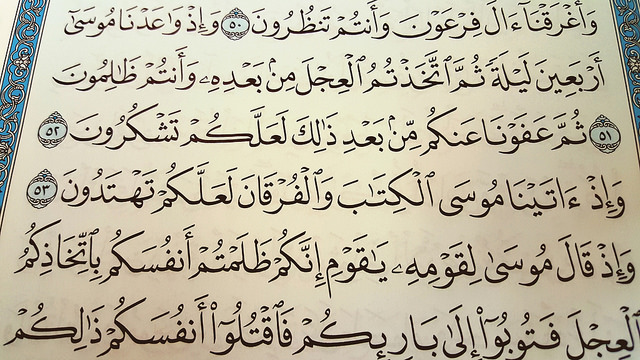 وَأَغْرَقْنَآ ءَالَ فِرْعَوْنَ وَأَنتُمْ تَنظُرُونَ ٥٠ وَإِذْ وَٰعَدْنَا مُوسَىٰٓ
أَرْبَعِينَ لَيْلَةً ثُمَّ ٱتَّخَذْتُمُ ٱلْعِجْلَ مِنۢ بَعْدِهِۦ وَأَنتُمْ ظَٰلِمُونَ
٥١ ثُمَّ عَفَوْنَا عَنكُم مِّنۢ بَعْدِ ذَٰلِكَ لَعَلَّكُمْ تَشْكُرُونَ ٥٢
وَإِذْ ءَاتَيْنَا مُوسَى ٱلْكِتَٰبَ وَٱلْفُرْقَانَ لَعَلَّكُمْ تَهْتَدُونَ ٥٣
وَإِذْ قَالَ مُوسَىٰ لِقَوْمِهِۦ يَٰقَوْمِ إِنَّكُمْ ظَلَمْتُمْ أَنفُسَكُم بِٱتِّخَاذِكُمُ
ٱلْعِجْلَ فَتُوبُوٓا۟ إِلَىٰ بَارِئِكُمْ فَٱقْتُلُوٓا۟ أَنفُسَكُمْ ذَٰلِكُمْ